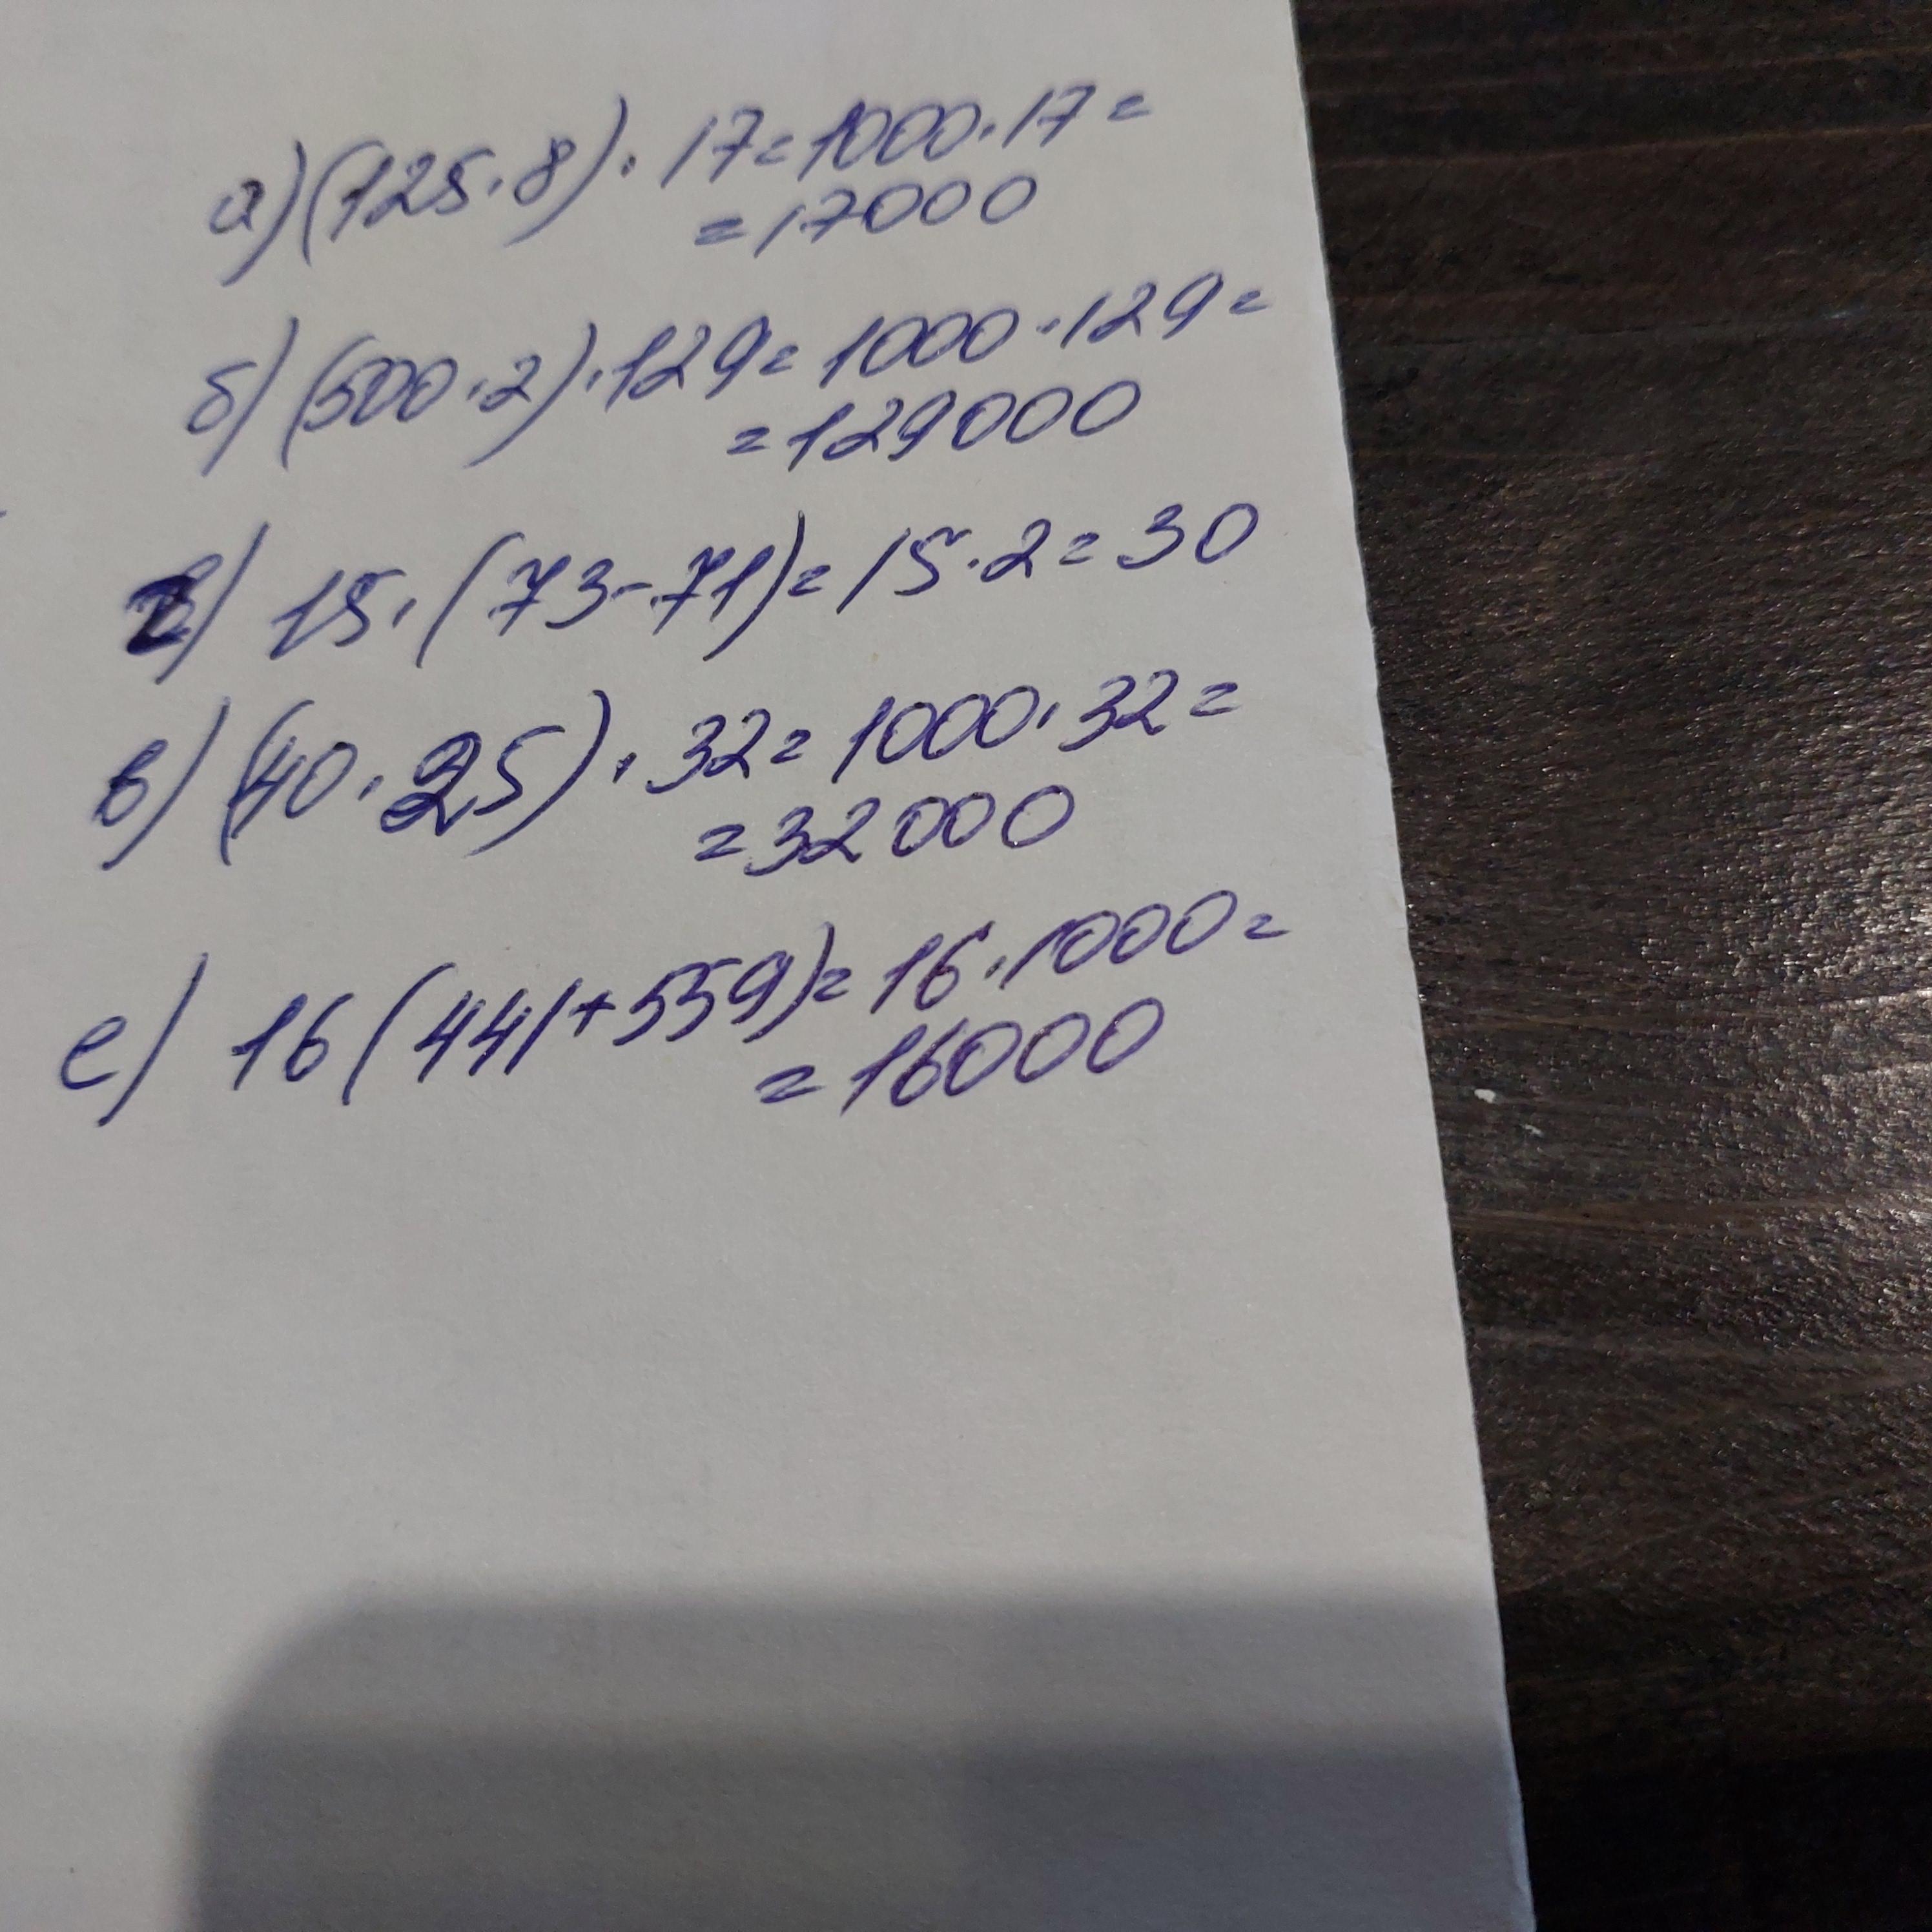 а) (125·8)·17=1000·17=
=17000
б) (500·2)·129=1000·129=
=129000
) 15·(73-71)=15·2=30
в) (40·25)·32=1000·32=
=32000
е) 16(441+559)=16·1000=
=16000